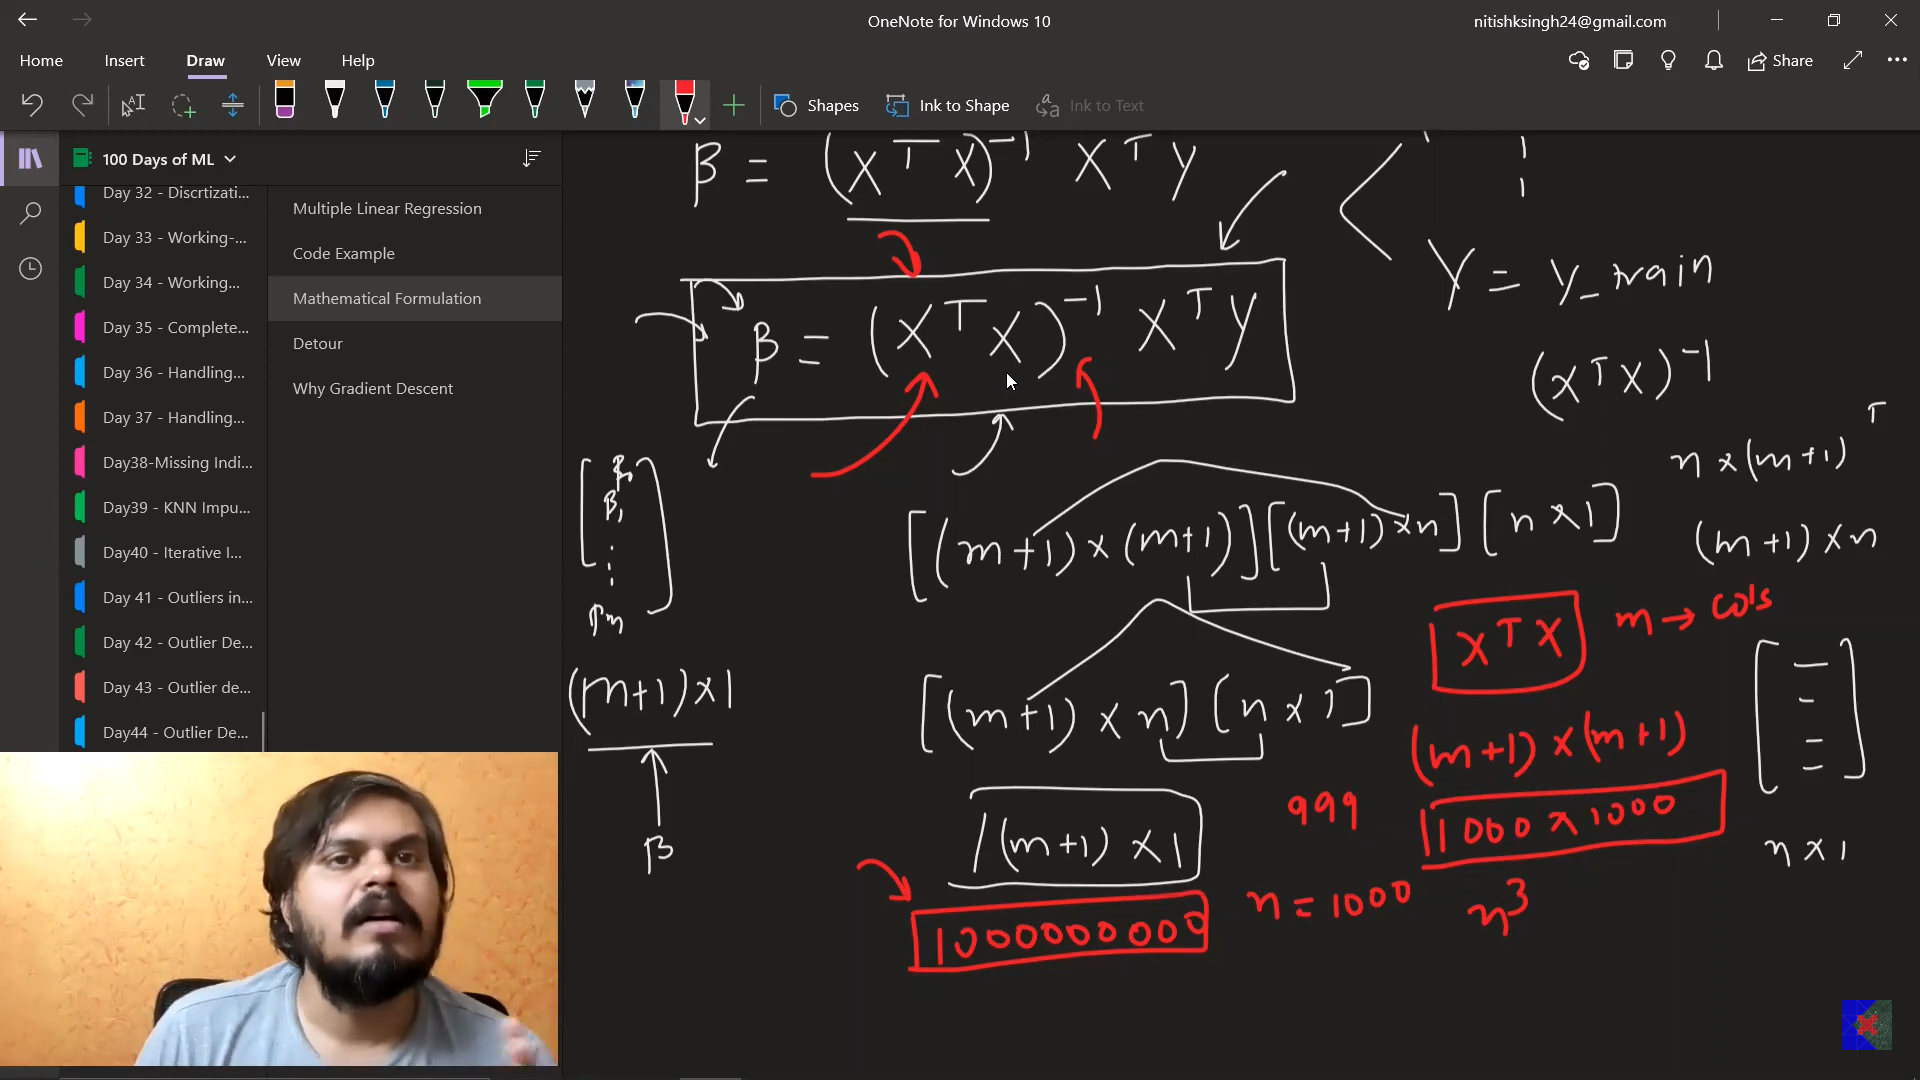 OneNote for Windows 10
nitishksingh24@gmail.com
Home Insert Draw View Help
Share
Shapes Ink to Shape Ink to Text
100 Days of ML
Day 32 - Discrtizati...
Day 33 - Working-...
Day 34 - Working...
Day 35 - Complete...
Day 36 - Handling...
Day 37 - Handling...
Day38-Missing Indi...
Day39 - KNN Impu...
Day40 - Iterative I...
Day 41 - Outliers in...
Day 42 - Outlier De...
Day 43 - Outlier de...
Day44 - Outlier De...
Multiple Linear Regression
Code Example
Mathematical Formulation
Detour
Why Gradient Descent
β = (X^T X)^-1 X^T Y
β = (X^T X)^-1 X^T Y
Y = Y_train
(X^T X)^-1
n × (m+1) ^T
(m+1) × n
β0
β1
⋮
βm
(m+1) × 1
β
[(m+1) × (m+1)] [(m+1) × n] [n × 1]
[(m+1) × n] [n × 1]
(m+1) × 1
X^T X m → cols
(m+1) × (m+1)
999 1000 × 1000
n × 1
1000000000 n = 1000 n^3